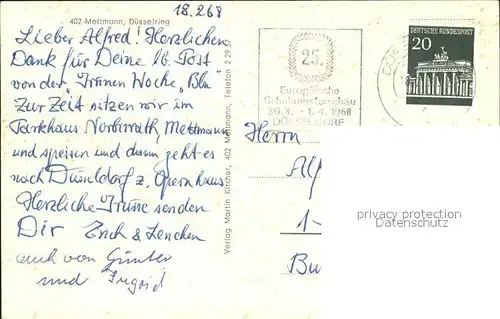 402 Mettmann, Düsselring
18.2.68
Lieber Alfred! Herzlichen
Dank für Deine lb. Post
von der „Grünen Woche" Bln
Zur Zeit sitzen wir im
Parkhaus Mettmann
und speisen und dann geht es
nach Düsseldorf z. Opernhaus
Herzliche Grüße senden
Dir & Lenchen
auch von Günter
und Ingrid
Verlag Martin Kircher, 402 Mettmann, Telefon 2 29
25.
Europäische
30.3. - 1.4.1968
DÜSSELDORF
DEUTSCHE BUNDESPOST
20
Herrn
Alf
1-
Bu
privacy protection
Datenschutz